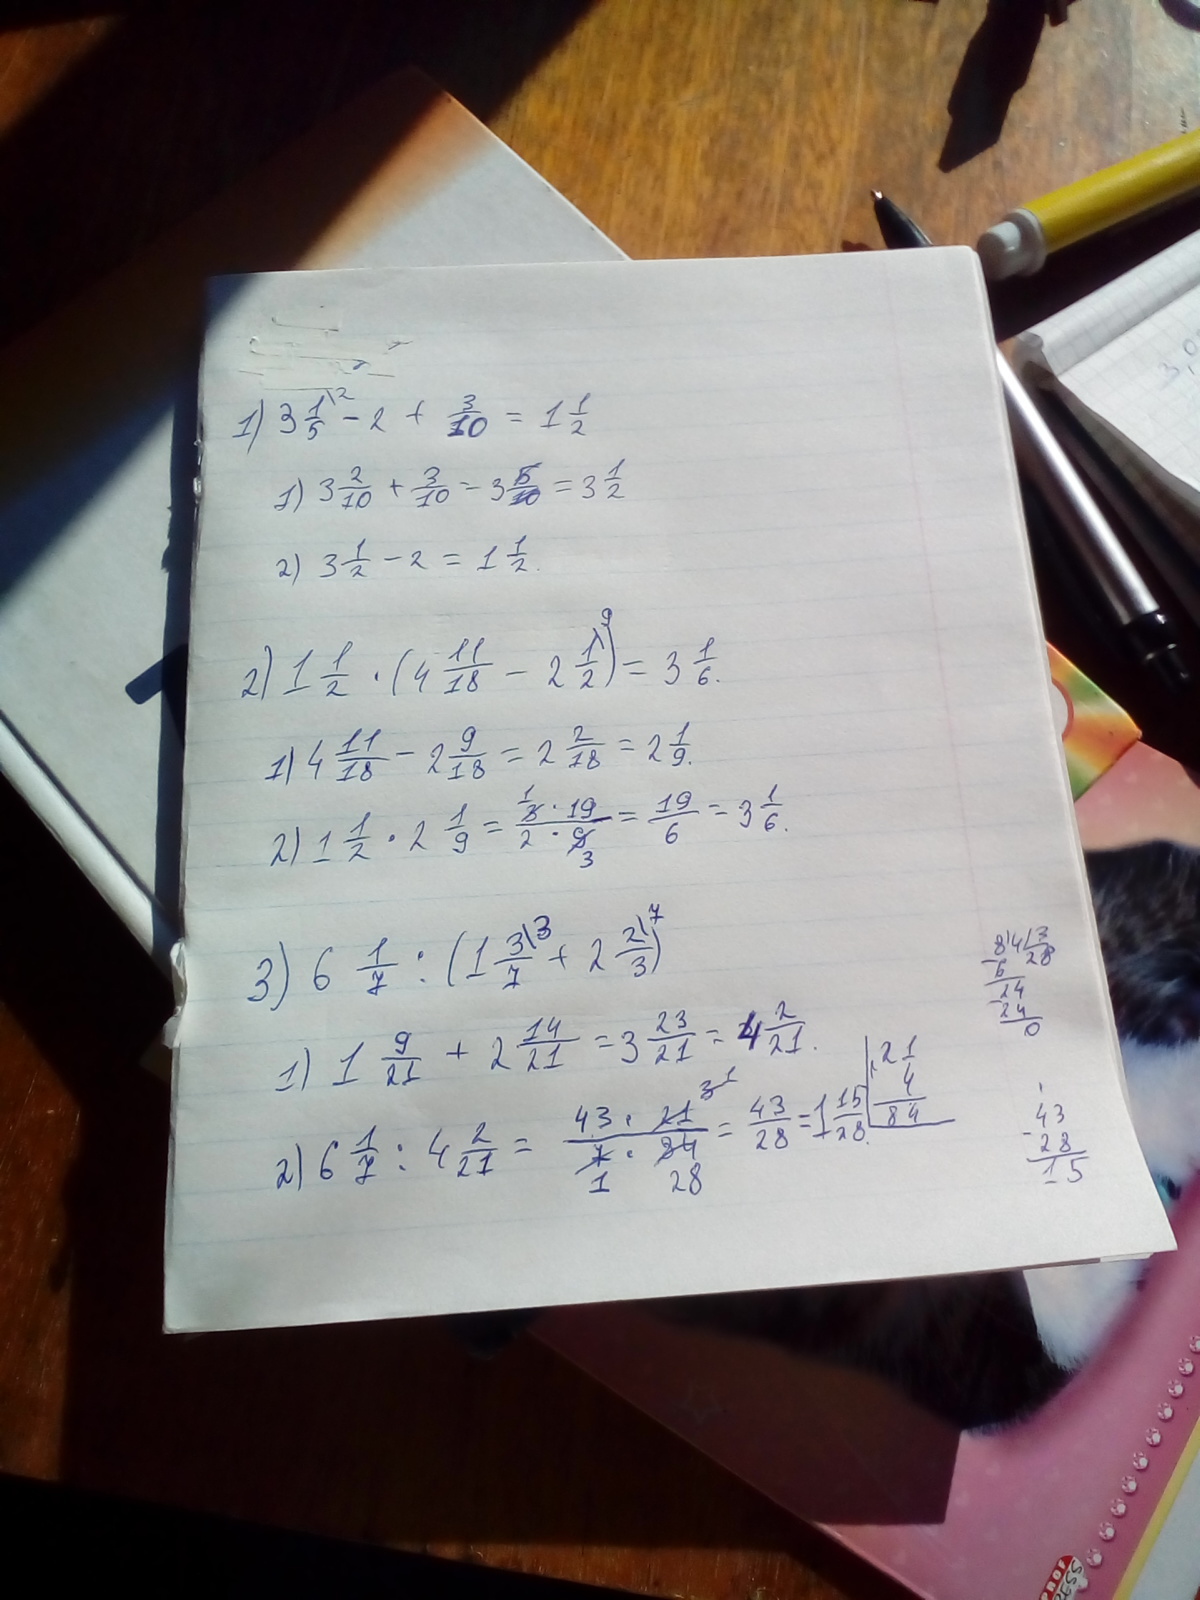 1) 3 1/5 \2 - 2 + 3/10 = 1 1/2
1) 3 2/10 + 3/10 = 3 5/10 = 3 1/2
2) 3 1/2 - 2 = 1 1/2.
2) 1 1/2 · (4 11/18 - 2 1/2 \9) = 3 1/6.
1) 4 11/18 - 2 9/18 = 2 2/18 = 2 1/9.
2) 1 1/2 · 2 1/9 = 1 3 · 19 / 2 · 9 3 = 19/6 = 3 1/6.
3) 6 1/7 : (1 3/7 \3 + 2 2/3 \7)
1) 1 9/21 + 2 14/21 = 3 23/21 = 4 2/21.
2) 6 1/7 : 4 2/21 = 43 · 21 3 1 / 7 · 84 1 28 = 43/28 = 1 15/28.
21
4
84
84 3
6 28
24
24
0
43
- 28
15
PROF